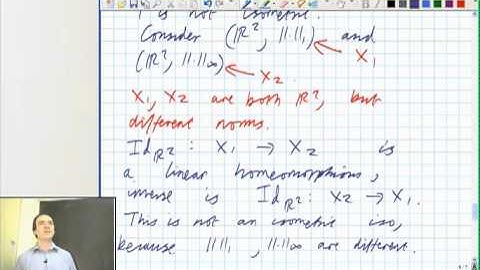 T is not isometric.
Consider (ℝ², ‖·‖₁) and
X₁
(ℝ², ‖·‖∞)
X₂
X₁, X₂ are both ℝ², but
different norms.
Idℝ² : X₁ → X₂ is
a linear homeomorphism,
inverse is Idℝ² : X₂ → X₁.
This is not an isometric iso,
because ‖·‖₁, ‖·‖∞ are different.